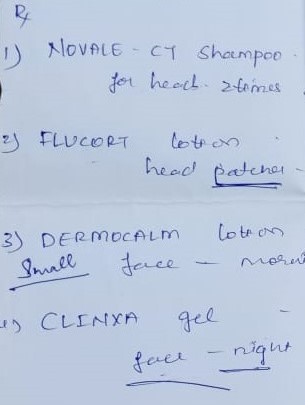 Rx
1) NOVALE - CT Shampoo
for head. 2 times
2) FLUCORT lotion
head patches -
3) DERMOCALM lotion
Small face -
4) CLINXA gel -
face - night